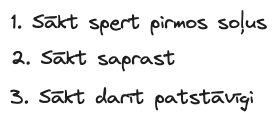 1. Sākt spert pirmos soļus
2. Sākt saprast
3. Sākt darīt patstāvīgi